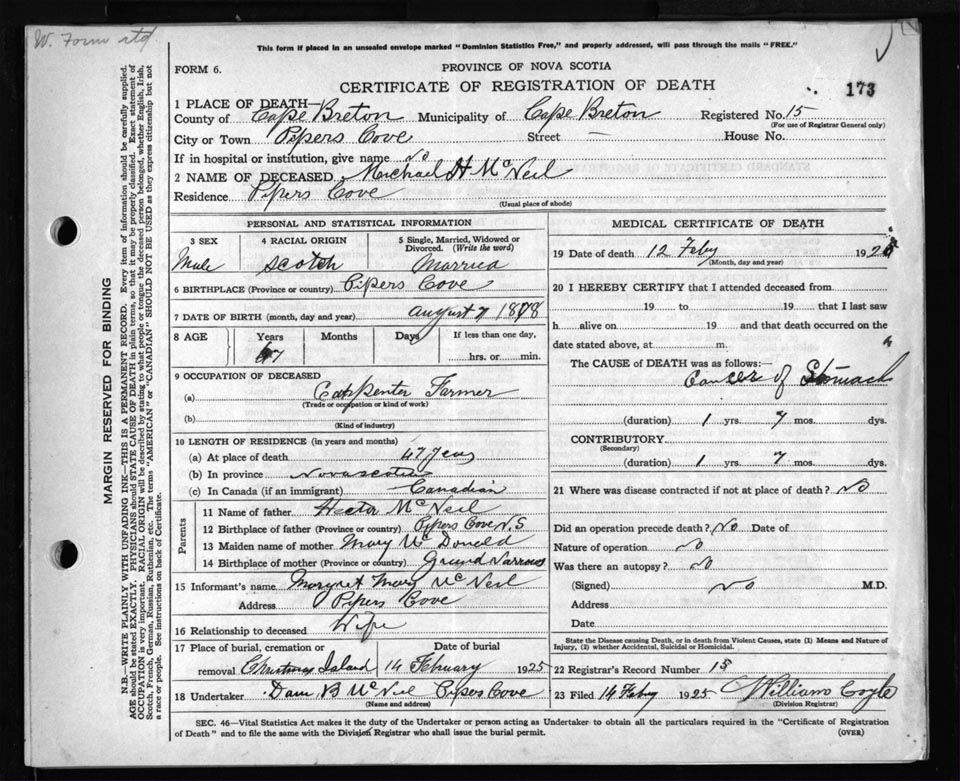 W. Form
This form if placed in an unsealed envelope marked "Dominion Statistics Free," and properly addressed, will pass through the mails "FREE."
PROVINCE OF NOVA SCOTIA
FORM 6.
CERTIFICATE OF REGISTRATION OF DEATH
173
1 PLACE OF DEATH—
County of Cape Breton Municipality of Cape Breton Registered No. 15
(For use of Registrar General only)
City or Town Pipers Cove Street — House No.
If in hospital or institution, give name No
2 NAME OF DECEASED Michael H McNeil
Residence Pipers Cove
(Usual place of abode)
MARGIN RESERVED FOR BINDING
N.B.—WRITE PLAINLY WITH UNFADING INK—THIS IS A PERMANENT RECORD. Every item of information should be carefully supplied.
AGE should be stated EXACTLY. PHYSICIANS should STATE CAUSE OF DEATH in plain terms, so that it may be properly classified. Exact statement of
OCCUPATION is very important. RACIAL ORIGIN will be described by stating to what people or tongue the deceased person belonged, whether English, Irish,
Scotch, French, German, Russian, Ruthenian, etc. The terms "AMERICAN" or "CANADIAN" SHOULD NOT BE USED as they express citizenship but not
a race or people. See instructions on back of Certificate.
PERSONAL AND STATISTICAL INFORMATION
3 SEX 4 RACIAL ORIGIN 5 Single, Married, Widowed or
Divorced. (Write the word)
Male Scotch Married
6 BIRTHPLACE (Province or country) Pipers Cove
7 DATE OF BIRTH (month, day and year) August 7 1878
8 AGE Years Months Days If less than one day,
47 hrs. or min.
9 OCCUPATION OF DECEASED
(a) Carpenter Farmer
(Trade or occupation or kind of work)
(b)
(Kind of industry)
10 LENGTH OF RESIDENCE (in years and months)
(a) At place of death 47 years
(b) In province Novascotia
(c) In Canada (if an immigrant) Canadian
Parents
11 Name of father Hector McNeil
12 Birthplace of father (Province or country) Pipers Cove N.S
13 Maiden name of mother Mary McDonald
14 Birthplace of mother (Province or country) Grand Narrows
15 Informant's name Margret Mary McNeil
Address Pipers Cove
16 Relationship to deceased Wife
17 Place of burial, cremation or Date of burial
removal Christmas Island 14 February 1925
18 Undertaker B McNeil Pipers Cove
(Name and address)
MEDICAL CERTIFICATE OF DEATH
19 Date of death 12 Feby 192
(Month, day and year)
20 I HEREBY CERTIFY that I attended deceased from
19 to 19 that I last saw
h alive on 19 and that death occurred on the
date stated above, at m.
The CAUSE of DEATH was as follows:—
Cancer of Stomach
(duration) 1 yrs. 7 mos. dys.
CONTRIBUTORY
(Secondary)
(duration) 1 yrs. 7 mos. dys.
21 Where was disease contracted if not at place of death? No
Did an operation precede death? No Date of
Nature of operation No
Was there an autopsy? No
(Signed) No M.D.
Address
Date
State the Disease causing Death, or in death from Violent Causes, state (1) Means and Nature of
Injury, (2) whether Accidental, Suicidal or Homicidal.
22 Registrar's Record Number 15
23 Filed 14 Feby 1925 William Coyle
(Division Registrar)
SEC. 46—Vital Statistics Act makes it the duty of the Undertaker or person acting as Undertaker to obtain all the particulars required in the "Certificate of Registration
of Death" and to file the same with the Division Registrar who shall issue the burial permit. (OVER)